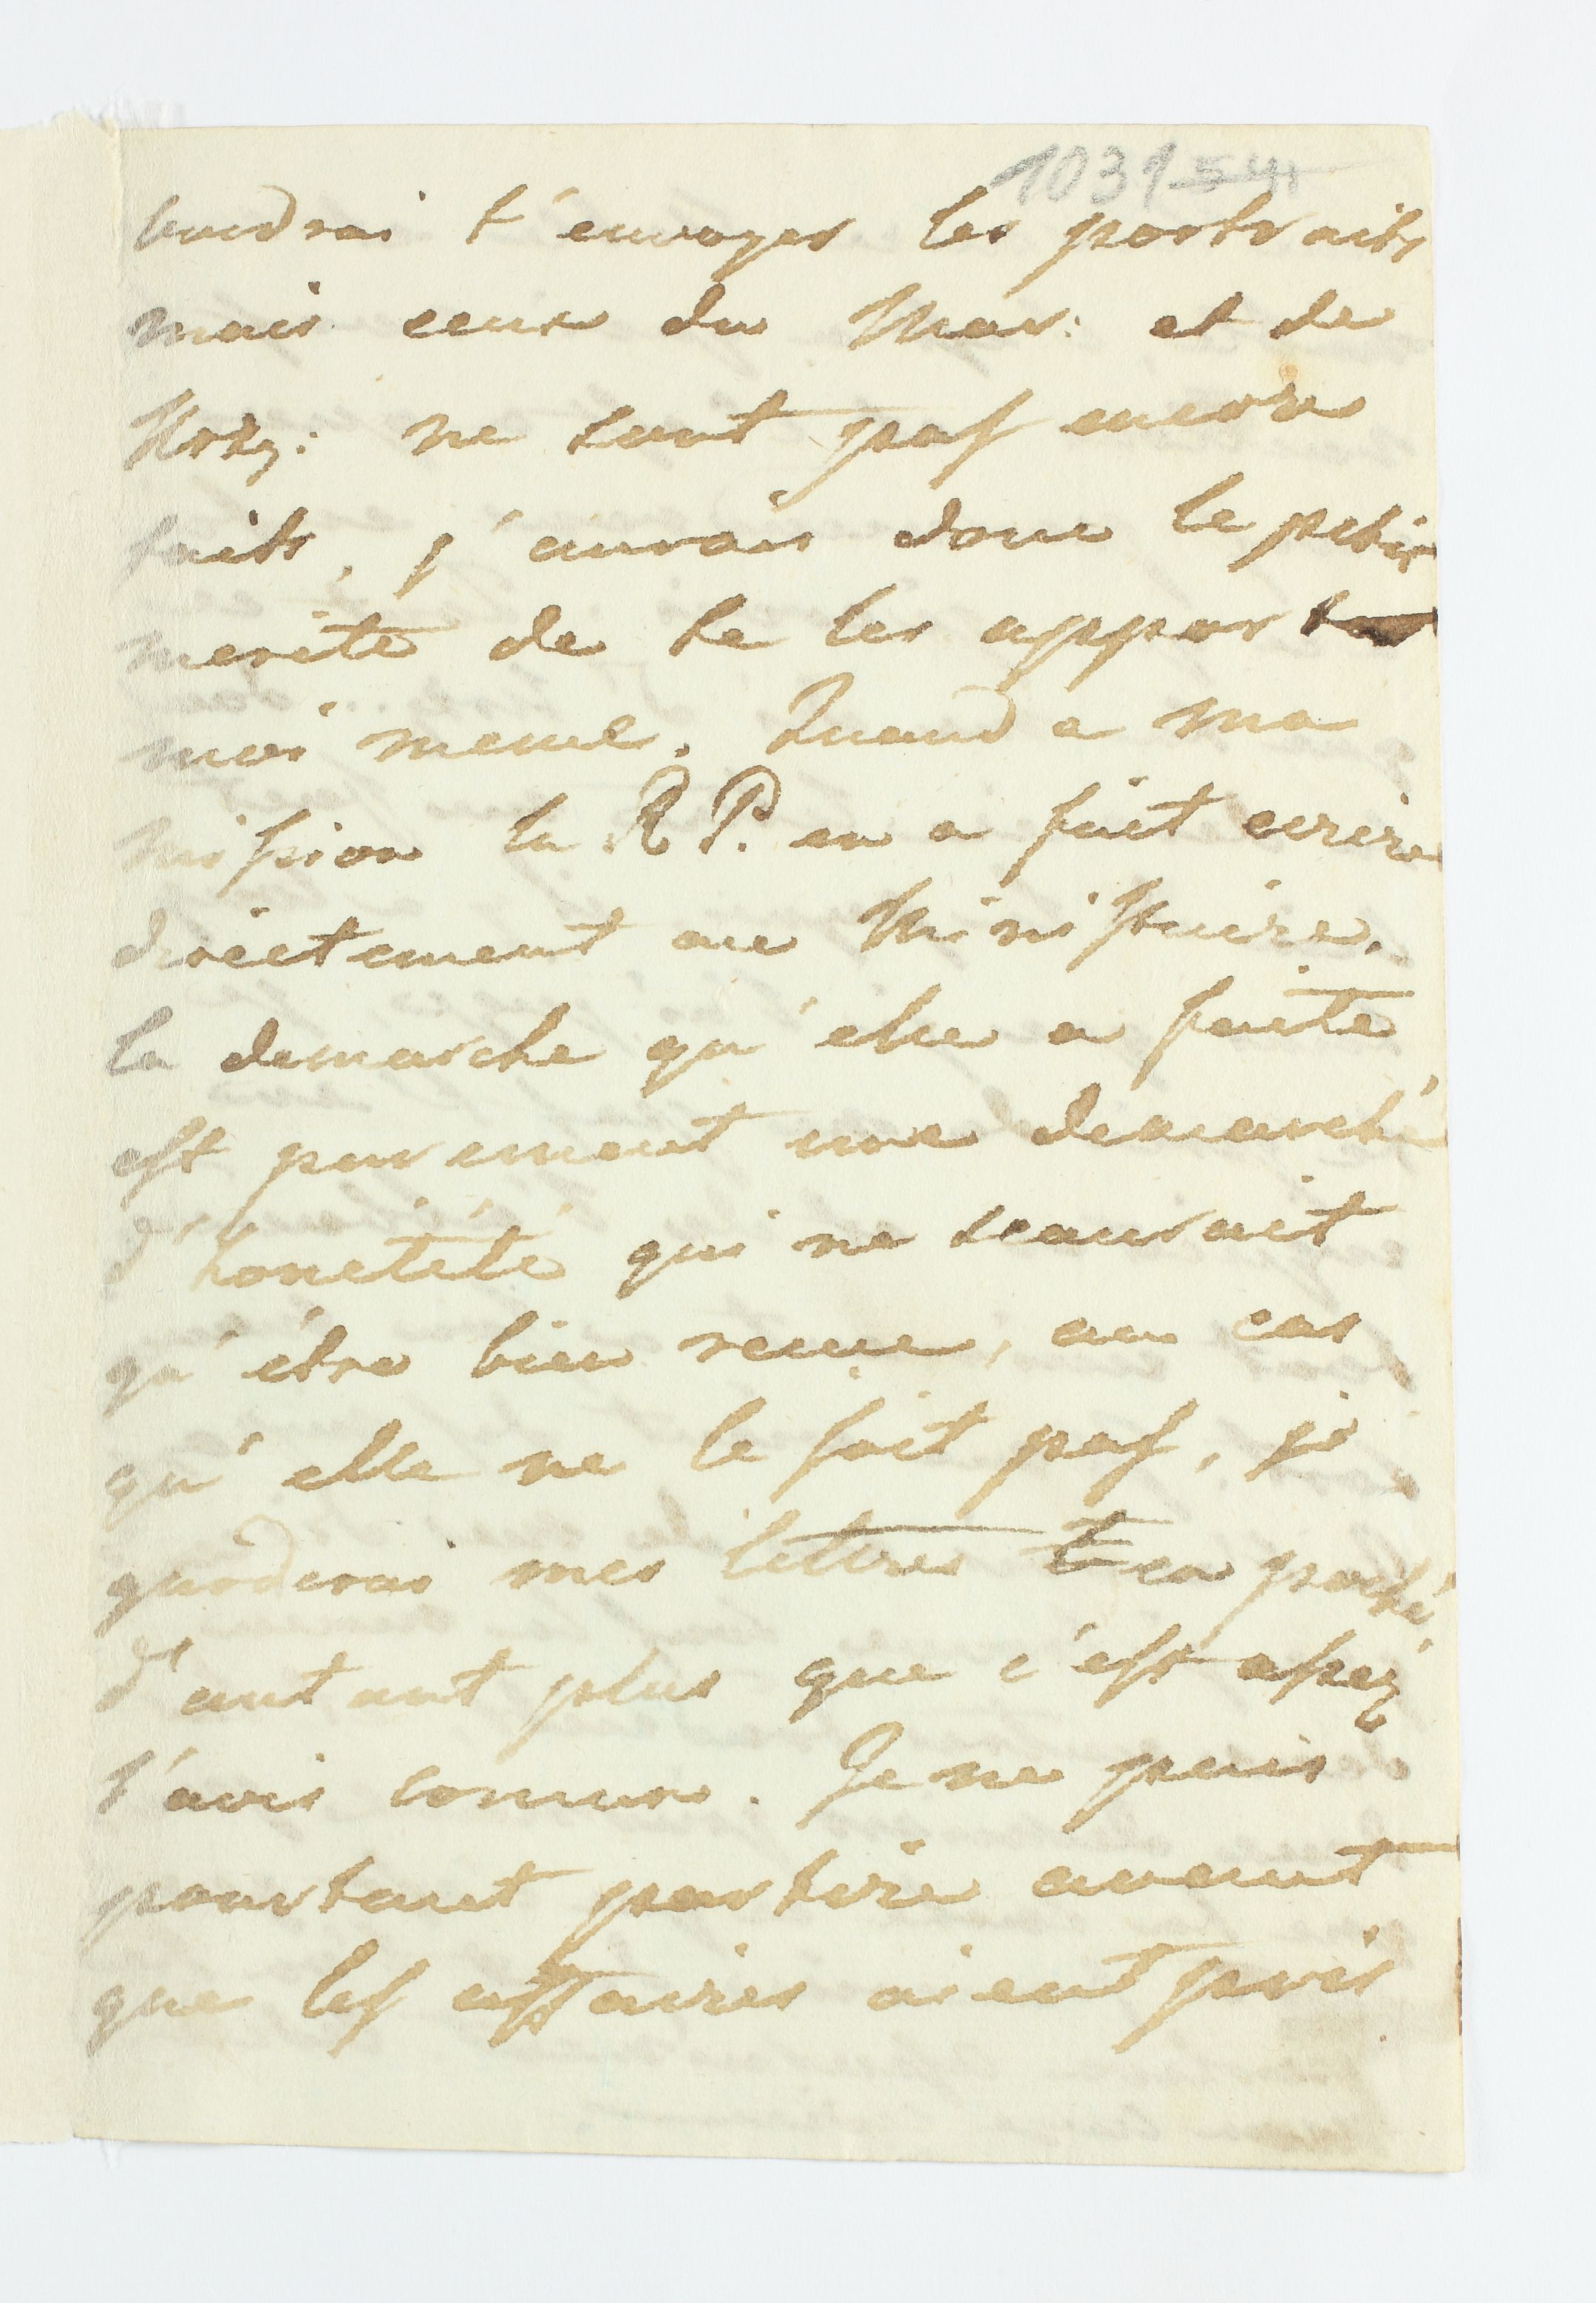 1031 54
voudrai t'envoyer les portraits
mais ceux du Mar: et de
ne sont pas encore
faits, j'aurais donc le petit
merite de te les apporter
moi meme. Quand a ma
mission la R P. en a fait ecrire
directement au Ministaire.
la demarche qu'elle a faite
est purement une demarche
d'honétété qui ne scaurait
qu'étre bien reçue, au cas
qu'elle ne le soit pas, je
garderai mes lettres en poche
d'autant plus que c'est assez
l'avis comun. Je ne puis
pourtant partire avant
que les affaires aient pris